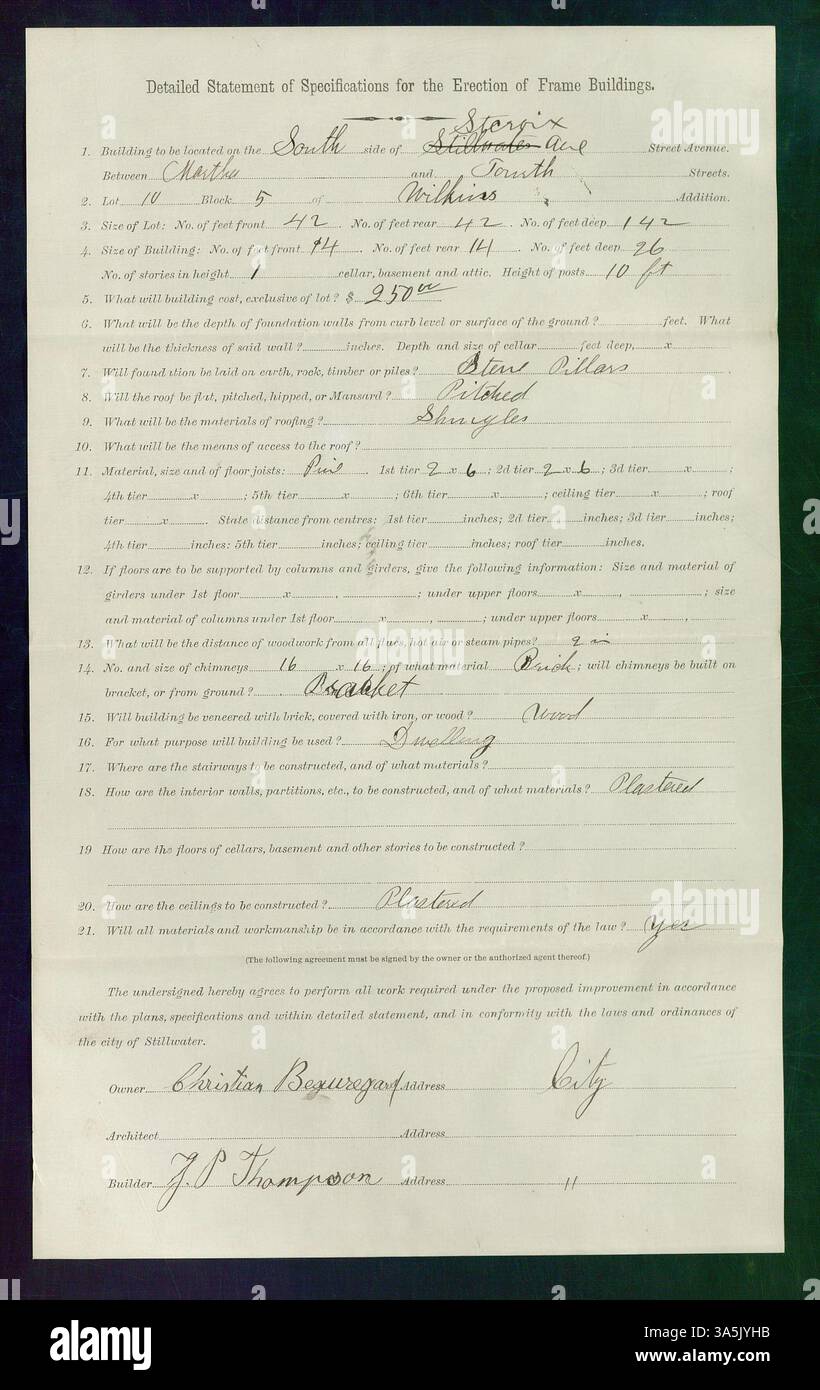 Detailed Statement of Specifications for the Erection of Frame Buildings.
St croix
1. Building to be located on the South side of Stillwater Ave Street Avenue.
Between Martha and Fourth Streets.
2. Lot 10 Block 5 of Wilkins Addition.
3. Size of Lot: No. of feet front 42 No. of feet rear 42 No. of feet deep 142
4. Size of Building: No. of feet front 14 No. of feet rear 14 No. of feet deep 26
No. of stories in height 1 cellar, basement and attic. Height of posts 10 ft
5. What will building cost, exclusive of lot? $ 250 00
6. What will be the depth of foundation walls from curb level or surface of the ground? feet. What
will be the thickness of said wall? inches. Depth and size of cellar feet deep, x
7. Will foundation be laid on earth, rock, timber or piles? Stone Pillars
8. Will the roof be flat, pitched, hipped, or Mansard? Pitched
9. What will be the materials of roofing? Shingles
10. What will be the means of access to the roof?
11. Material, size and of floor joists: Pine 1st tier 2 x 6; 2d tier 2 x 6; 3d tier x ;
4th tier x ; 5th tier x ; 6th tier x ; ceiling tier x ; roof
tier x . State distance from centres: 1st tier inches; 2d tier inches; 3d tier inches;
4th tier inches: 5th tier inches; ceiling tier inches; roof tier inches.
12. If floors are to be supported by columns and girders, give the following information: Size and material of
girders under 1st floor x , ; under upper floors x , ; size
and material of columns under 1st floor x , ; under upper floors x ,
13. What will be the distance of woodwork from all flues, hot air or steam pipes? 2 in
14. No. and size of chimneys 16 x 16; of what material Brick; will chimneys be built on
bracket, or from ground? Bracket
15. Will building be veneered with brick, covered with iron, or wood? Wood
16. For what purpose will building be used? Dwelling
17. Where are the stairways to be constructed, and of what materials?
18. How are the interior walls, partitions, etc., to be constructed, and of what materials? Plastered
19 How are the floors of cellars, basement and other stories to be constructed?
20. How are the ceilings to be constructed? Plastered
21. Will all materials and workmanship be in accordance with the requirements of the law? Yes
(The following agreement must be signed by the owner or the authorized agent thereof.)
The undersigned hereby agrees to perform all work required under the proposed improvement in accordance
with the plans, specifications and within detailed statement, and in conformity with the laws and ordinances of
the city of Stillwater.
Owner Christian Beauregard Address City
Architect Address
Builder J. P Thompson Address "
alamy
Image ID: 3A5JYHB
www.alamy.com